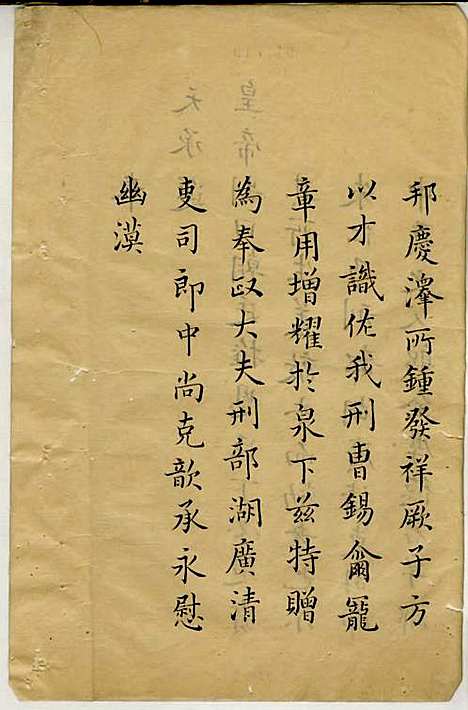 邦慶澤所鍾發祥厥子方
以才識佐我刑曹錫爾寵
章用增耀於泉下兹特贈
為奉政大夫刑部湖廣清
吏司郎中尚克歆承永慰
幽漠